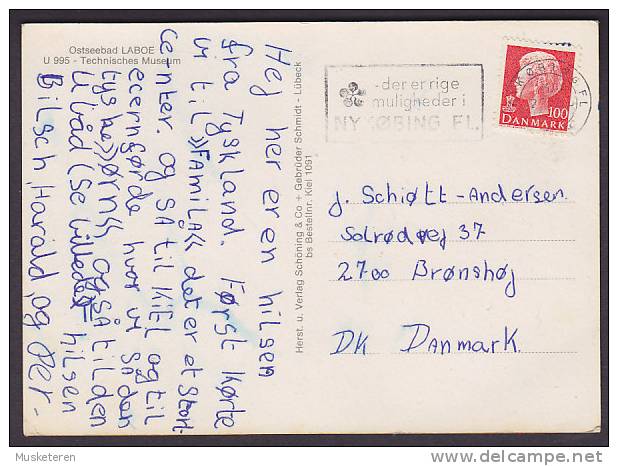 Ostseebad LABOE
U 995 - Technisches Museum
Hej her er en hilsen
fra Tyskland. Først kørte
vi til »FamilA« det er et Stort
center. og så til KIEL og til
ecernførde hvor vi så den
tyske »ØRN« og så til den
U båd (se billedet hilsen
Bilsch Harald, og Per-
Herst. u. Verlag Schöning & Co + Gebrüder Schmidt - Lübeck
bs Bestellnr. Kiel 1091
- der er rige
muligheder i
NYKØBING FL.
100
DANMARK
J. Schiøtt-Andersen
Solrødvej 37
2700 Brønshøj
DK Danmark.
Musketeren
www.delcampe.net